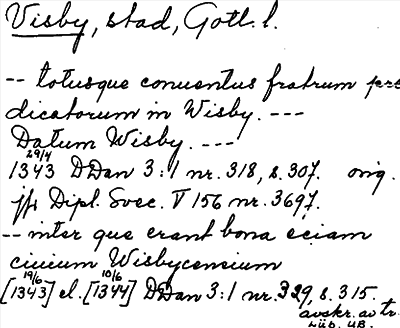 Visby, stad, Gotl. l.
-- totusque conuentus fratrum pre
dicatorum in Wisby. ---
Datum Wisby. ---
29/4
1343 DDan 3:1 nr. 318, s. 307. orig.
jfr Dipl. Svec. V 156 nr. 3697.
-- inter que erant bona eciam
ciuium Wisbycensium
19/6 10/6
[1343] el. [1344] DDan 3:1 nr. 329, s. 315.
avskr. av tr.
Lüb. UB.